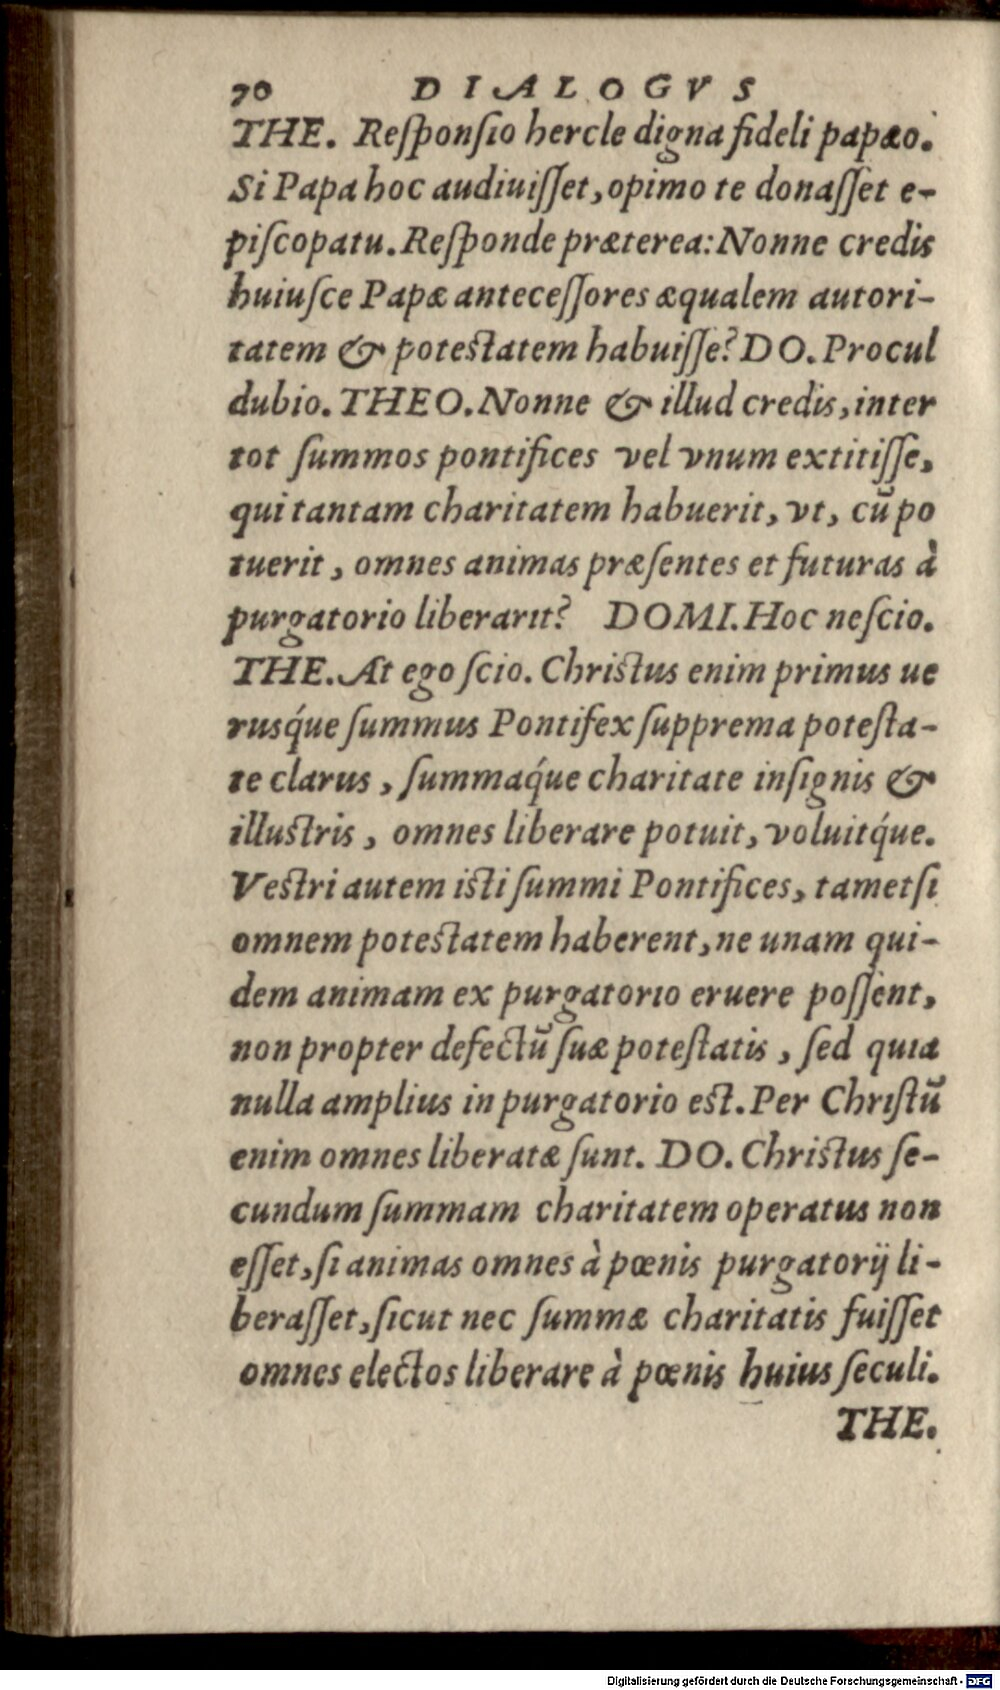 70 DIALOGVS
THE. Reſponſio hercle digna fideli papæo.
Si Papa hoc audiuiſſet, opimo te donaſſet e-
piſcopatu. Reſponde præterea: Nonne credis
huiuſce Papæ anteceſſores æqualem autori-
tatem & poteſtatem habuiſſe? DO. Procul
dubio. THEO. Nonne & illud credis, inter
tot ſummos pontifices vel vnum extitiſſe,
qui tantam charitatem habuerit, vt, cū po
tuerit, omnes animas præſentes et futuras à
purgatorio liberarit? DOMI. Hoc neſcio.
THE. At ego ſcio. Chriſtus enim primus ue
rusq́ue ſummus Pontifex ſupprema poteſta-
te clarus, ſummaq́ue charitate inſignis &
illuſtris, omnes liberare potuit, voluitq́ue.
Veſtri autem iſti ſummi Pontifices, tametſi
omnem poteſtatem haberent, ne unam qui-
dem animam ex purgatorio eruere poſſent,
non propter defectū ſuæ poteſtatis, ſed quia
nulla amplius in purgatorio eſt. Per Chriſtū
enim omnes liberatæ ſunt. DO. Chriſtus ſe-
cundum ſummam charitatem operatus non
eſſet, ſi animas omnes à pœnis purgatorij li-
beraſſet, ſicut nec ſummæ charitatis fuiſſet
omnes electos liberare à pœnis huius ſeculi.
THE.
Digitalisierung gefördert durch die Deutsche Forschungsgemeinschaft - DFG